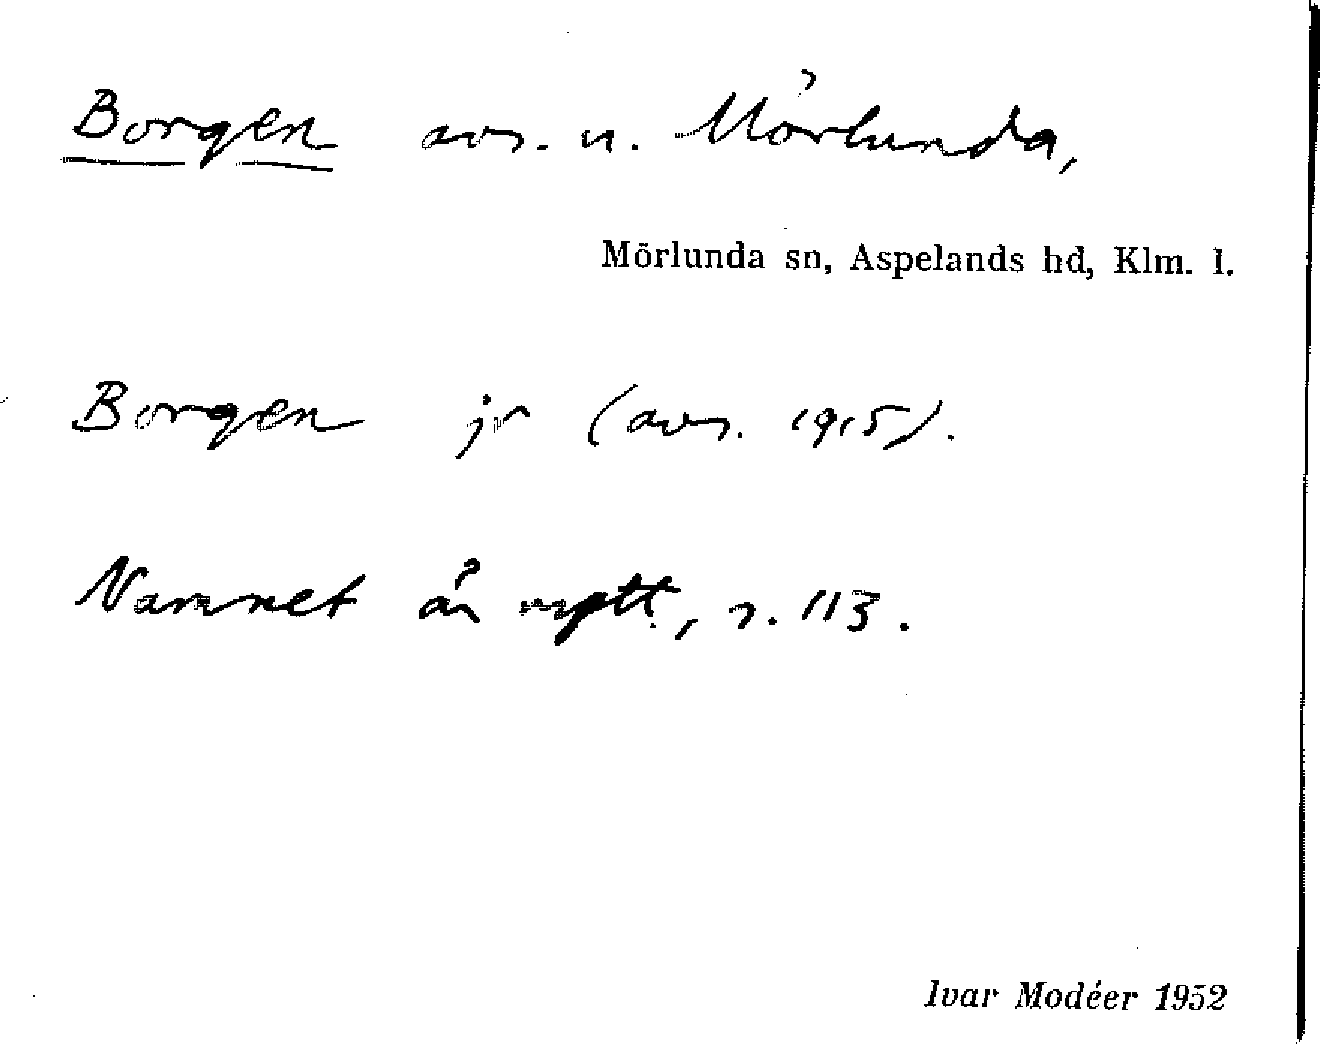 Borgen avs. u. Mörlunda,
Mörlunda sn, Aspelands hd, Klm. l.
Borgen jr (avs. 1915).
Namnet är nytt, s. 113.
Ivar Modéer 1952